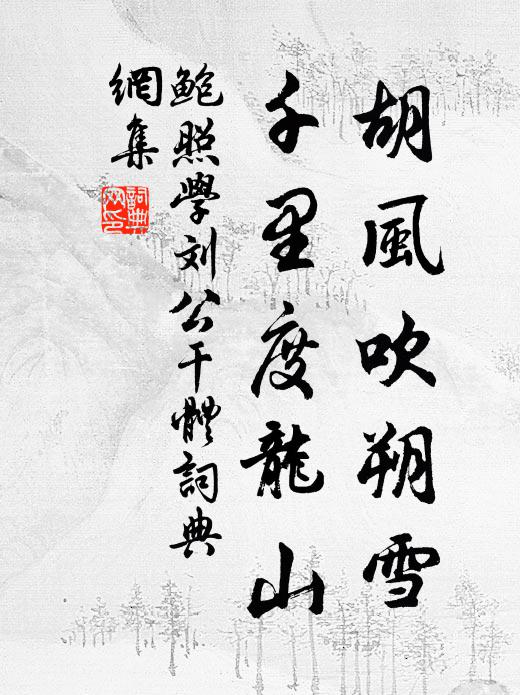 胡風吹朔雪
千里度龍山
鮑照學刘公干體詞典
網集
詞典
网印